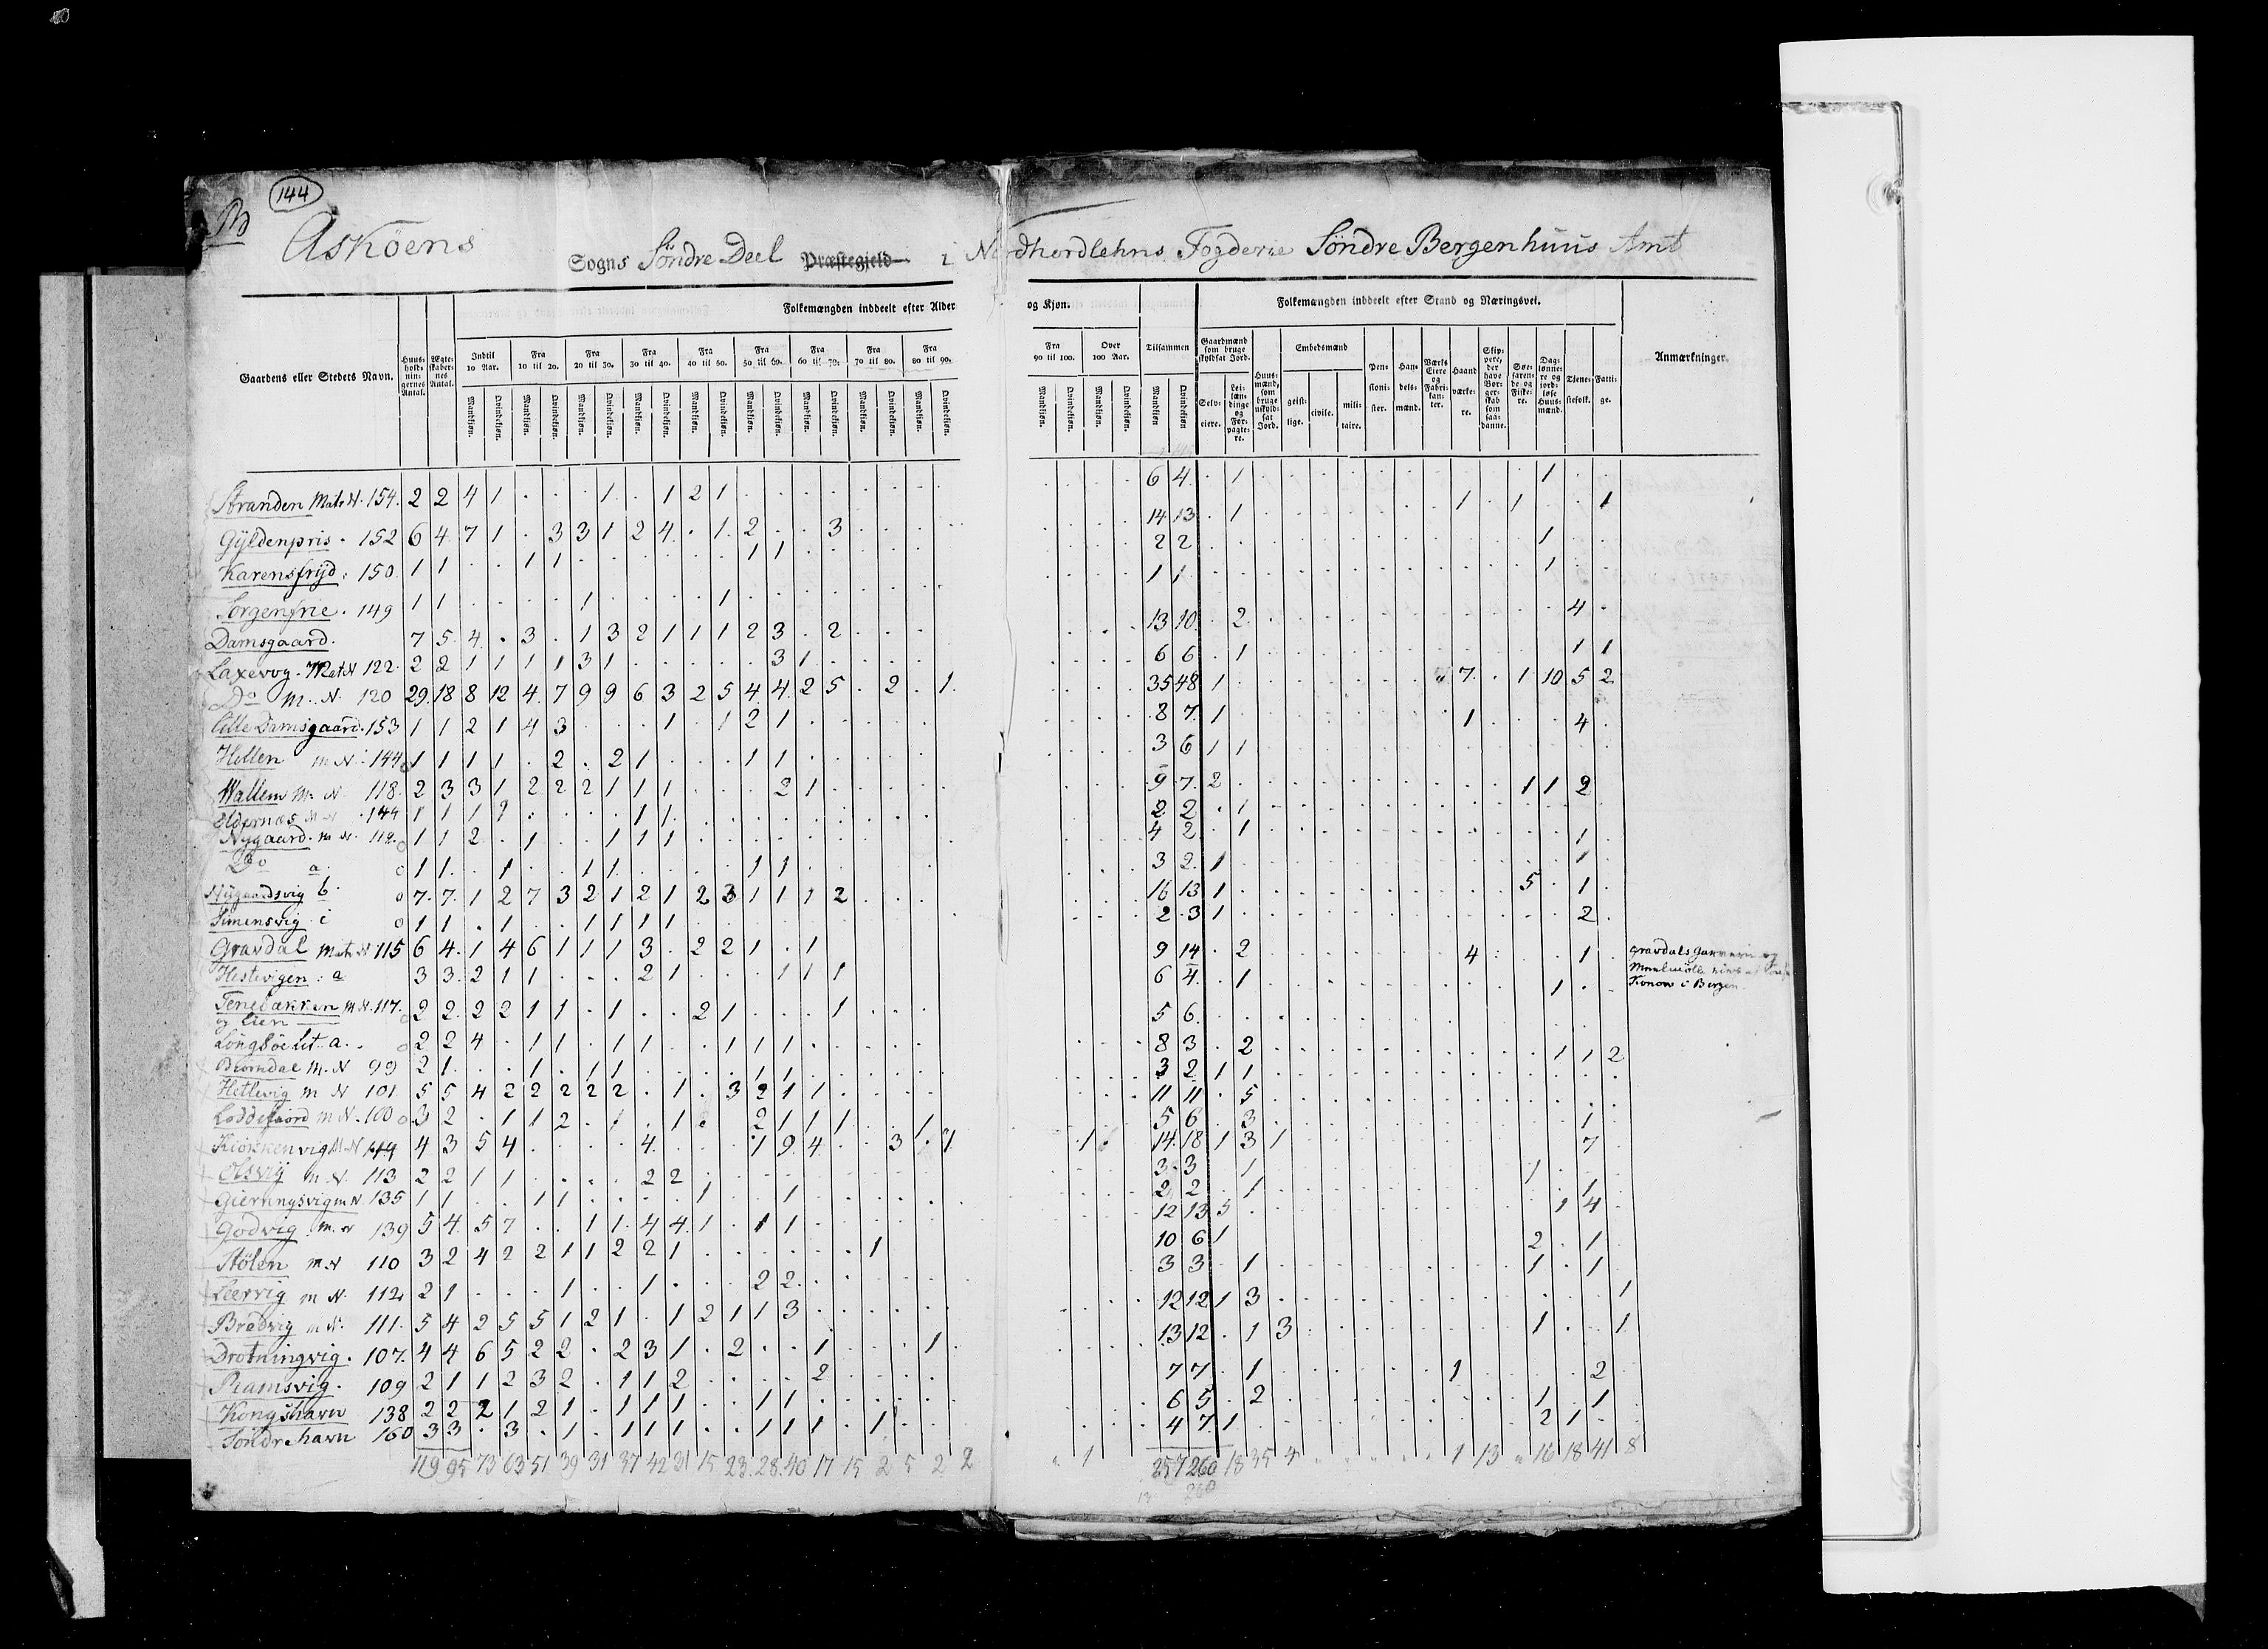 144
Askøens Sogns Søndre Deel Præstegjeld i Nordhordlehns Fogderie Søndre Bergenhuus Amt
Gaardens eller Stedets Navn.
Huus-holdningernes Antal.
Ægteskabernes Antal.
Folkemængden inddeelt efter Alder og Kjøn.
Indtil 10 Aar. Fra 10 til 20. Fra 20 til 30. Fra 30 til 40. Fra 40 til 50. Fra 50 til 60. Fra 60 til 70. Fra 70 til 80. Fra 80 til 90. Fra 90 til 100. Over 100 Aar. Tilsammen
Mandkjøn. Qvindekjøn.
Folkemængden inddeelt efter Stand og Næringsvei.
Gaardmænd som bruge skyldsat Jord.
Selveiere. Leilændinge og Forpagtere.
Huusmænd, som bruge uskyldsat Jord.
Embedsmænd
geistlige. civile. militaire.
Pensionister. Handelsmænd. Værks Eiere og Fabrikanter. Haandværkere. Skippere, der have Borgerskab som saadanne. Søefarende og Fiskere. Daglønnere og jordløse Huusmænd. Tjenestefolk. Fattige.
Anmærkninger.
Stranden Matr N. 154. 2 2 4 1 . . . 1 . 1 2 1 6 4 . 1 1
Gyldenpris . 152 6 4 7 1 . 3 3 1 2 4 . 1 2 . . 3 14 13 . 1 1 1 1
Karensfryd : 150. 1 1 . . 1 1 1 1 2 2 1
Sorgenfrie . 149 1 1 1 1 1 1 1
Damsgaard. 7 5 4 . 3 . 1 3 2 1 1 1 2 3 . 2 13 10 . 2 4
Laxevog . Mat N 122. 2 2 1 1 1 1 3 1 3 1 6 6 . 1 1 1
Do M. N. 120 29 18 8 12 4 7 9 9 6 3 2 5 4 4 2 5 . 2 . 1 35 48 1 7 . 1 10 5 2
Lille Damsgaard. 153 1 1 2 1 4 3 . . . 1 . 1 2 1 8 7 1 1 4
Hellen m N : 144 1 1 1 1 . 2 . 2 1 . . . 1 1 3 6 1 1
Wallem M. N. 118. 2 3 3 1 2 2 2 1 1 1 . . . 2 1 9 7 2 1 1 2
144 1 1 1 1 1 1 2 2 . 1
Nygaard. m N. 119. 1 1 2 . 1 . . 1 1 1 4 2 . 1 1
Do a. 1 1 . 1 . . 1 1 1 1 3 2 1 1
Nygaardsvig b. 7 7 1 2 7 3 2 1 2 1 2 3 1 1 1 2 16 13 1 5 . 1
Simensvig c 1 1 . 1 . . 1 1 1 1 2 3 1 2
Gravdal Matr N 115 6 4 1 4 6 1 1 1 3 . 2 2 1 . 1 9 14 . 2 4 1
Gravdals Garveri og
Hestevigen : a 3 3 2 1 1 . . . 2 1 . . . 1 1 1 6 4 . 1 1
Konow i Bergen
M N. 117. 2 2 2 2 1 1 . 1 . . 2 1 . . . 1 5 6
og Lien
Lit a. 2 2 4 . 1 1 . 1 1 . . 1 1 1 8 3 . 2 1 1 2
Biørndal M. N 99 2 1 . . 1 . 1 1 1 1 3 2 1 1
Hetlevig M N 101 5 5 4 2 2 2 2 2 . 1 . 3 2 1 1 11 11 . 5
Loddefiord M N. 100 3 2 . 1 1 2 . 1 . 1 . . 2 1 1 1 . . 1 5 6 . 3 1
4 3 5 4 . . . . 4 . . . 1 9 4 . . 3 . 1 1 14 18 1 3 1 7
Olsvig m. N. 113 2 2 1 1 . . . . 2 2 3 3 . 1 1
m N 135 1 1 . . 1 1 . . . . 1 . . 1 2 2 . 1 1
Godvig m. N 139 5 4 5 7 . . 1 1 4 4 1 . 1 1 12 13 5 1 4
Stølen m. N 110 3 2 4 2 2 1 1 2 2 1 1 10 6 1 2 . 1
Leervig m N. 112 2 1 . . . 1 . . 1 . . . 2 2 3 3 . 1 1 . 1
Brødvig m N. 111. 5 4 2 5 5 1 2 1 . 1 2 1 1 3 12 12 1 3 1
Drotningvig. 107. 4 4 6 5 2 2 . 2 3 1 . 2 . . 1 . . . 1 13 12 . 1 3 1 . . 1
Ramsvig. 109 2 1 1 2 3 2 . 1 1 2 2 7 7 . 1 1 2
Kongshavn 138 2 2 2 1 2 1 . 1 1 1 . . 1 1 6 5 . 2 1 . 1
Søndrehavn 160 3 3 . 3 . 1 . 1 1 1 . . 1 1 1 . 1 4 7 1 2 1
119 95 73 63 51 39 31 37 42 31 15 23 28 40 17 15 2 5 2 2 1 257 260 18 35 4 1 13 16 18 41 8
260